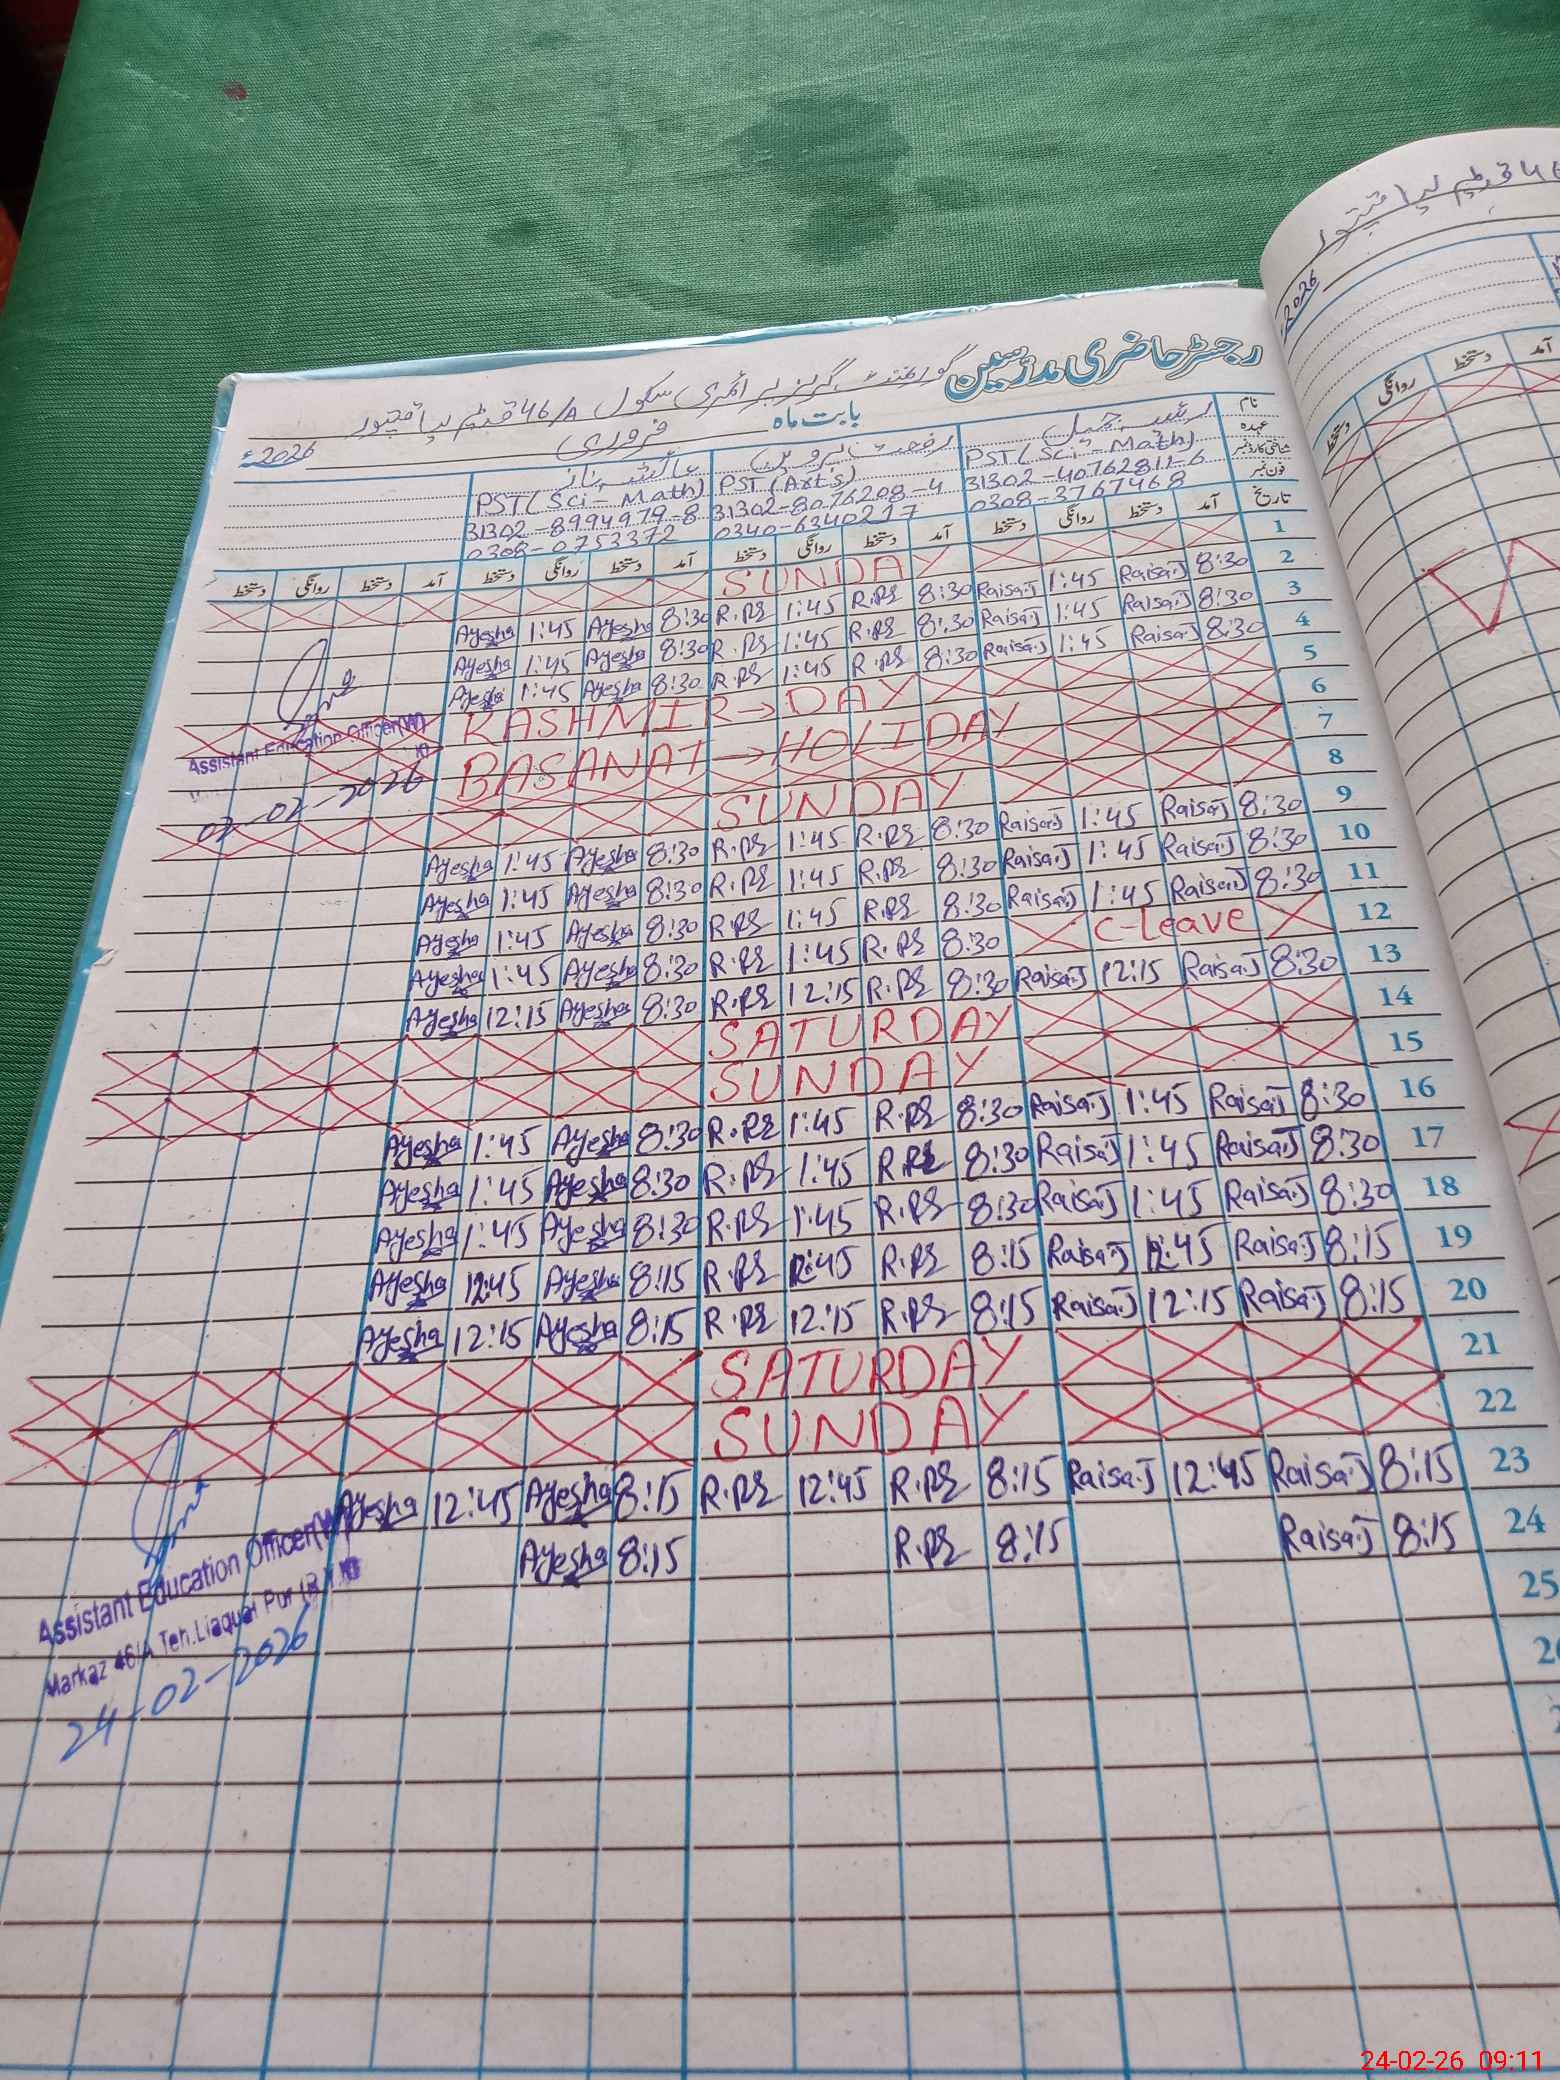 رجسٹر حاضری مدرسین
گورنمنٹ گرلز پرائمری سکول 46/A
بابت ماہ فروری 2026ء
نام
عہدہ PST (Sci-Math) PST (Art's) PST (Sci-Math)
شناختی کارڈ نمبر 31302-4076281-6 31302-8076208-4 31302-8994979-8
فون نمبر 0308-3767468 0340-6340217 0308-0753372
تاریخ آمد دستخط روانگی دستخط آمد دستخط روانگی دستخط آمد دستخط روانگی دستخط آمد دستخط روانگی دستخط
SUNDAY 1
Ayesha 1:45 Ayesha 8:30 R.PS 1:45 R.PS 8:30 Raisa.J 1:45 Raisa.J 8:30 2
Ayesha 1:45 Ayesha 8:30 R.PS 1:45 R.PS 8:30 Raisa.J 1:45 Raisa.J 8:30 3
Ayesha 1:45 Ayesha 8:30 R.PS 1:45 R.PS 8:30 Raisa.J 1:45 Raisa.J 8:30 4
KASHMIR → DAY 5
BASANAT → HOLIDAY 6
7
SUNDAY 8
Ayesha 1:45 Ayesha 8:30 R.PS 1:45 R.PS 8:30 Raisa.J 1:45 Raisa.J 8:30 9
Ayesha 1:45 Ayesha 8:30 R.PS 1:45 R.PS 8:30 Raisa.J 1:45 Raisa.J 8:30 10
Ayesha 1:45 Ayesha 8:30 R.PS 1:45 R.PS 8:30 Raisa.J 1:45 Raisa.J 8:30 11
Ayesha 1:45 Ayesha 8:30 R.PS 1:45 R.PS 8:30 C-leave 12
Ayesha 12:15 Ayesha 8:30 R.PS 12:15 R.PS 8:30 Raisa.J 12:15 Raisa.J 8:30 13
SATURDAY 14
SUNDAY 15
Ayesha 1:45 Ayesha 8:30 R.PS 1:45 R.PS 8:30 Raisa.J 1:45 Raisa.J 8:30 16
Ayesha 1:45 Ayesha 8:30 R.PS 1:45 R.PS 8:30 Raisa.J 1:45 Raisa.J 8:30 17
Ayesha 1:45 Ayesha 8:30 R.PS 1:45 R.PS 8:30 Raisa.J 1:45 Raisa.J 8:30 18
Ayesha 12:45 Ayesha 8:15 R.PS 12:45 R.PS 8:15 Raisa.J 12:45 Raisa.J 8:15 19
Ayesha 12:15 Ayesha 8:15 R.PS 12:15 R.PS 8:15 Raisa.J 12:15 Raisa.J 8:15 20
SATURDAY 21
SUNDAY 22
Ayesha 12:45 Ayesha 8:15 R.PS 12:45 R.PS 8:15 Raisa.J 12:45 Raisa.J 8:15 23
Ayesha 8:15 R.PS 8:15 Raisa.J 8:15 24
25
Assistant Education Officer (W)
02-02-2026
Assistant Education Officer (W)
Markaz 46/A Teh. Liaquat Pur
24-02-2026
2026ء
آمد دستخط روانگی دستخط
24-02-26 09:11